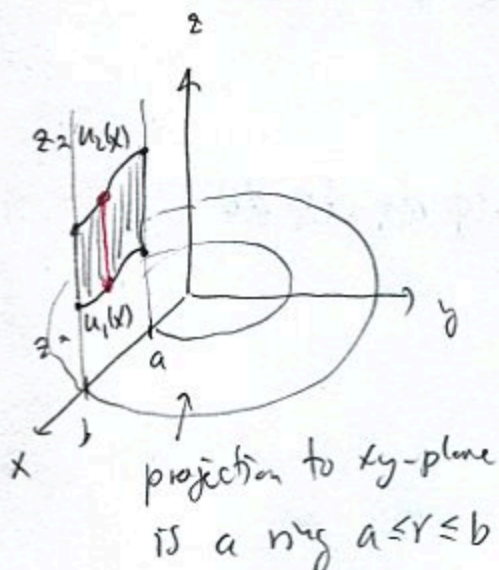 z
z = u₂(x)
z = u₁(x)
a
y
b
x
projection to xy-plane
is a ring a ≤ r ≤ b